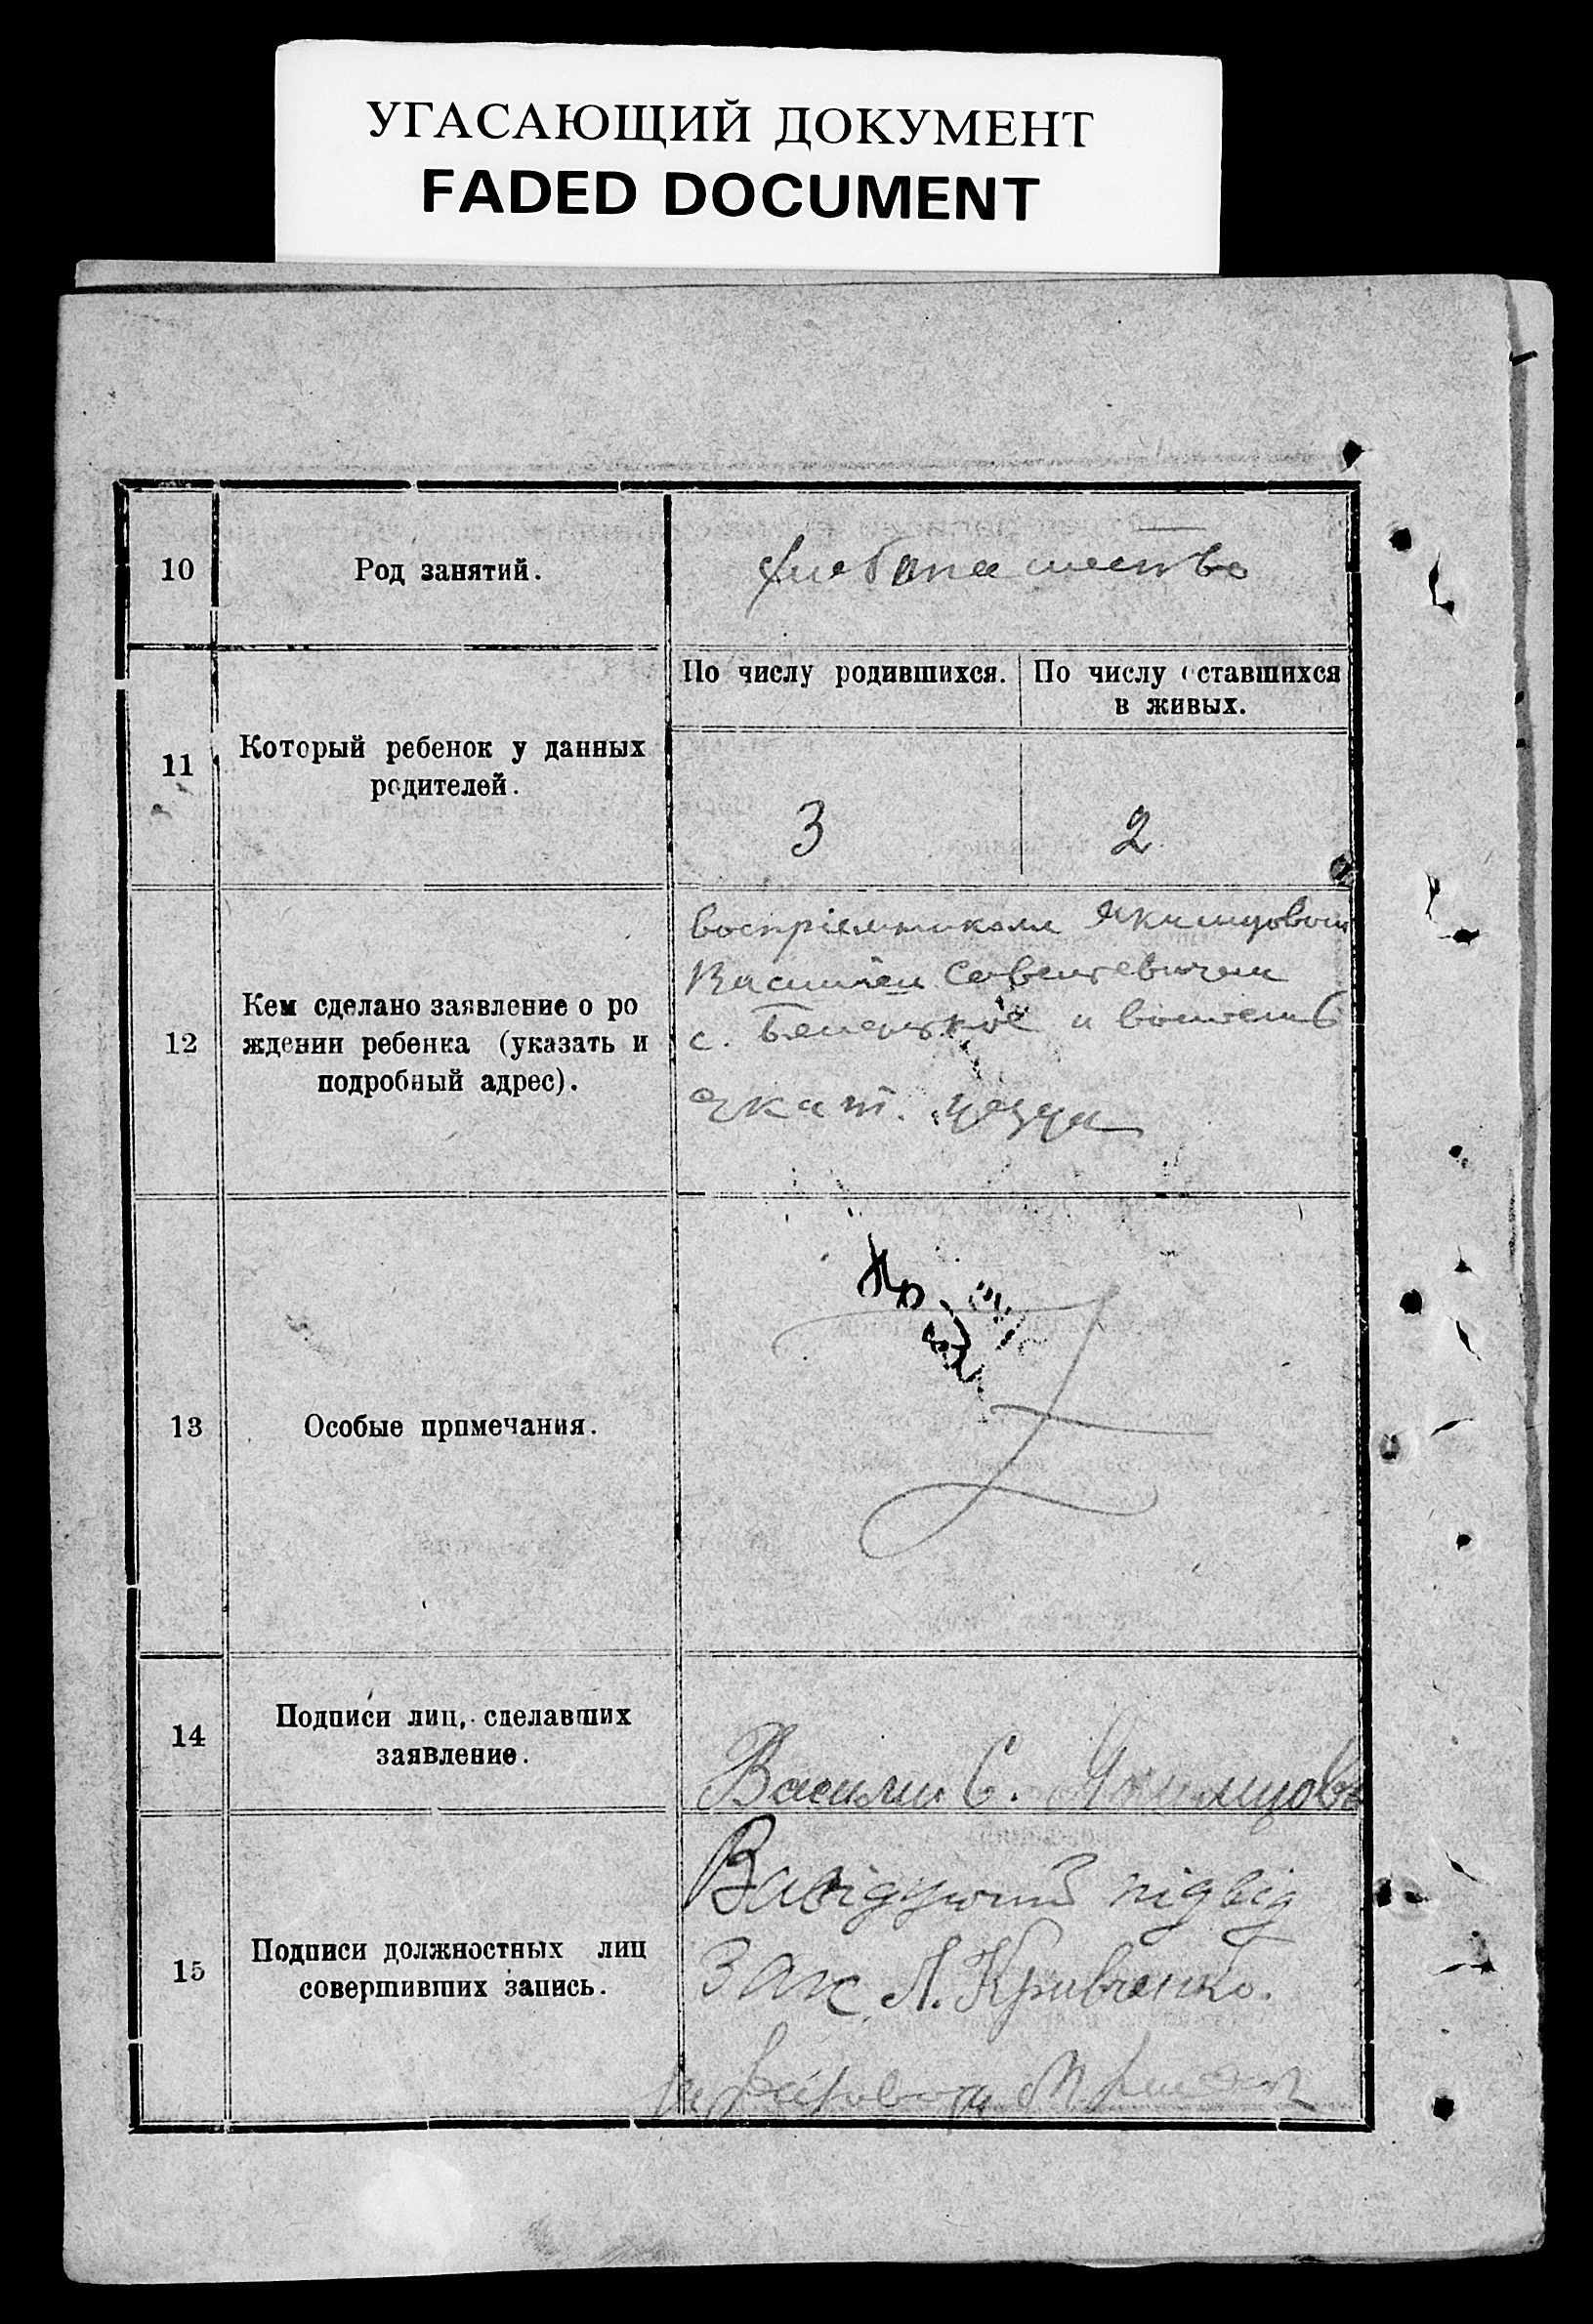 УГАСАЮЩИЙ ДОКУМЕНТ
FADED DOCUMENT
10
Род занятий.
хлебапашество
По числу родившихся.
По числу оставшихся
в живых.
11
Который ребенок у данных
родителей.
3
2
12
Кем сделано заявление о ро
ждении ребенка (указать и
подробный адрес).
воспріемником Якимцовым
Василием Савельевичем
с. и волости
Екат. уезда
13
Особые примечания.
14
Подписи лиц, сделавших
заявление.
Василий С. Якимцовъ
15
Подписи должностных лиц
совершивших запись.
Завідуючий підвід
Загс Л. Кривченко.